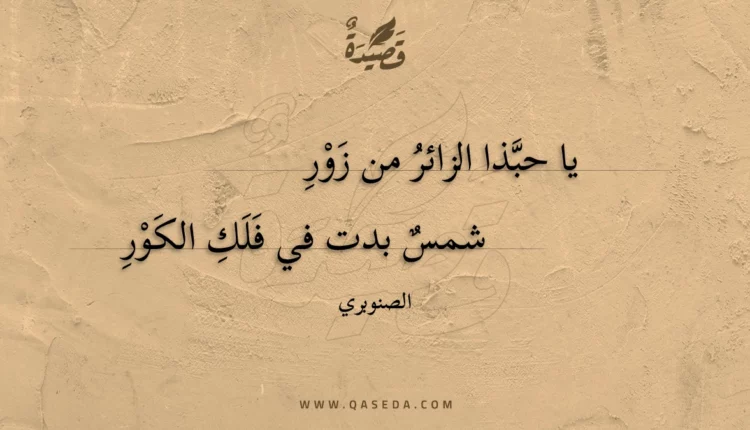 قَصِيْدَةٌ
يا حبَّذا الزائرُ من زَوْرِ
شمسٌ بدت في فَلَكِ الكَوْرِ
الصنوبري
WWW.QASEDA.COM